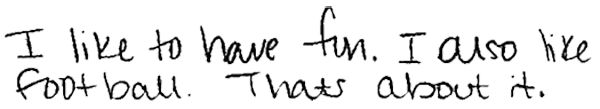 I like to have fun. I also like
football. Thats about it.